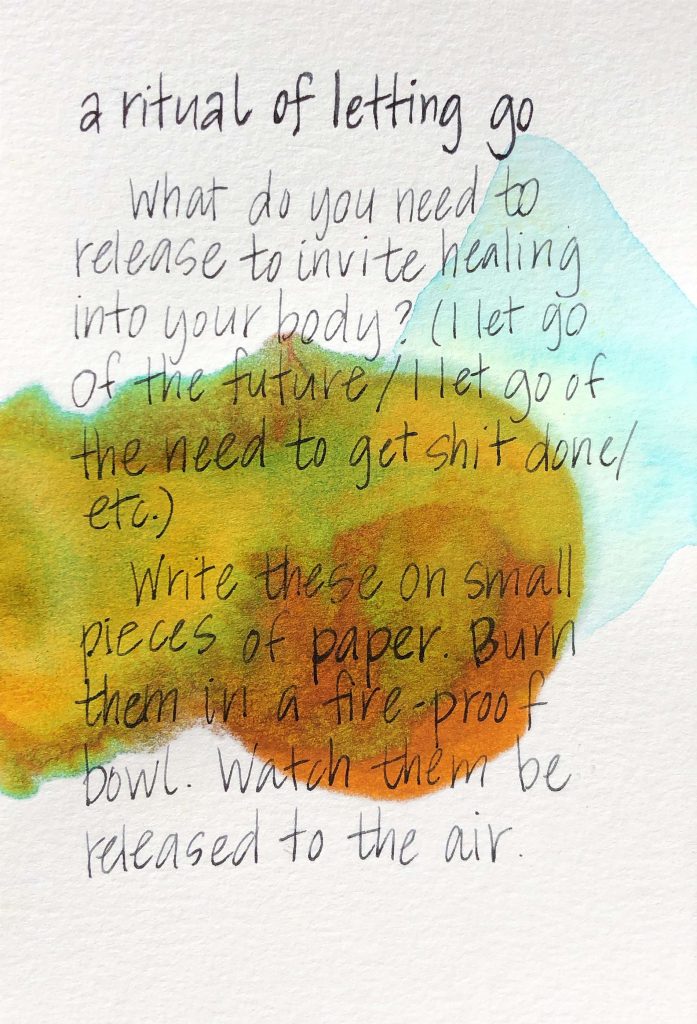 a ritual of letting go
What do you need to
release to invite healing
into your body? (I let go
of the future/I let go of
the need to get shit done/
etc.)
Write these on small
pieces of paper. Burn
them in a fire-proof
bowl. Watch them be
released to the air.